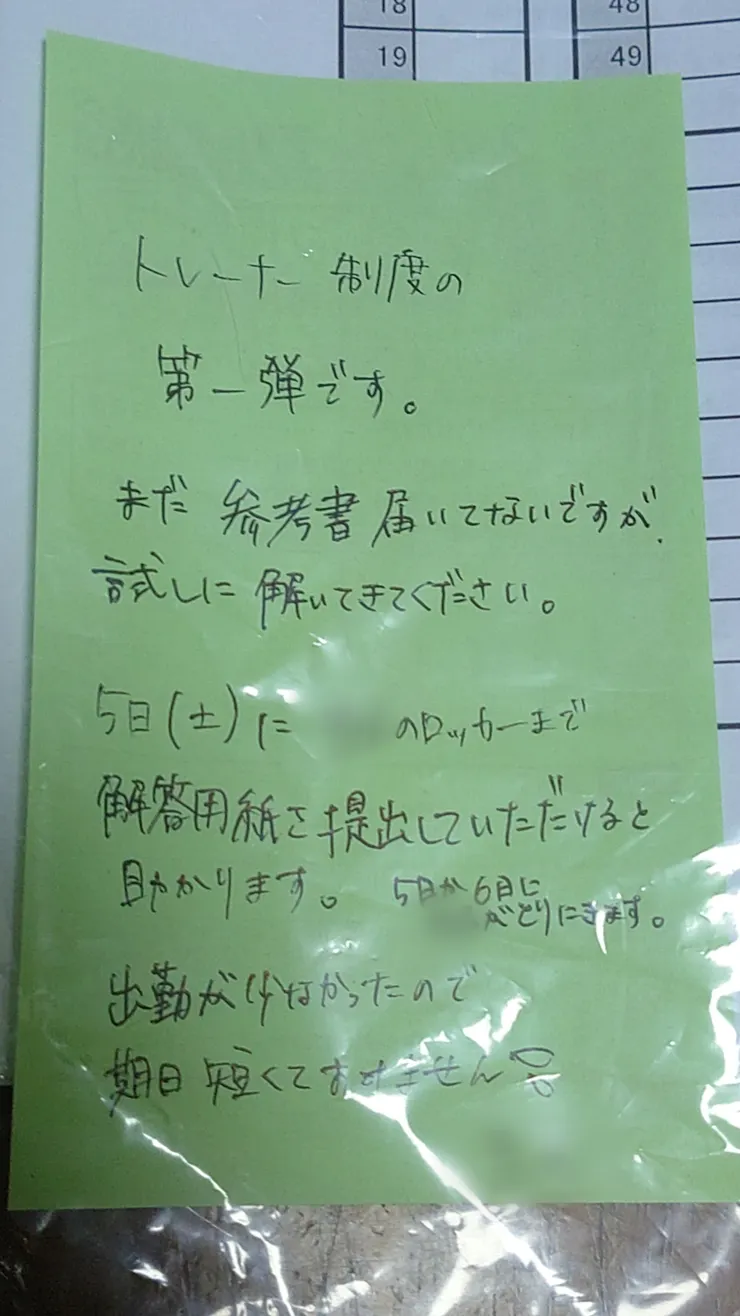 18 48
19 49
トレーナー制度の
第一弾です。
まだ参考書届いてないですが、
試しに解いてきてください。
5日(土)に のロッカーまで
解答用紙を提出していただけると
助かります。 5日か6日に
がとりにきます。
出勤が なかったので
期日短くてすみません